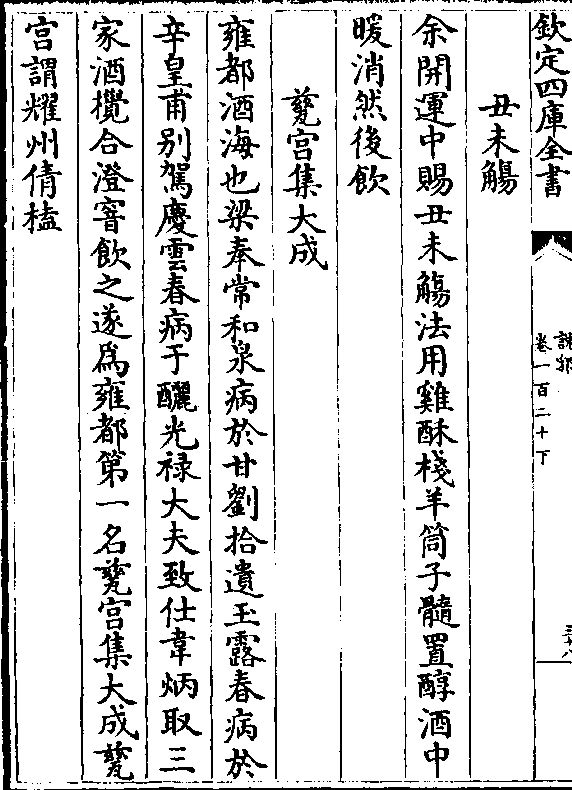 欽定四庫全書
說郛
卷一百二十下
三十八
丑未觴
余開運中賜丑未觴法用雞酥棧羊筒子髓置醇酒中
暖消然後飲
甕宫集大成
雍都酒海也梁奉常和泉病於甘劉拾遺玉露春病於
辛皇甫别駕慶雲春病于釃光禄大夫致仕韋炳取三
家酒攪合澄窨飲之遂爲雍都第一名甕宫集大成甕
宫謂耀州倩榼